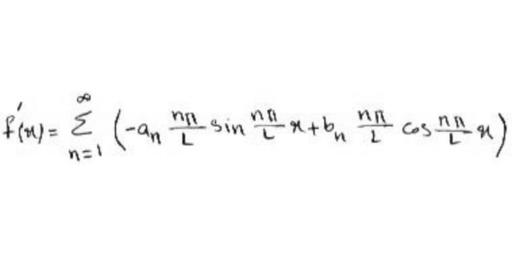 f'(x) = \sum_{n=1}^{\infty} \left( -a_n \frac{n\pi}{L} \sin \frac{n\pi}{L} x + b_n \frac{n\pi}{L} \cos \frac{n\pi}{L} x \right)